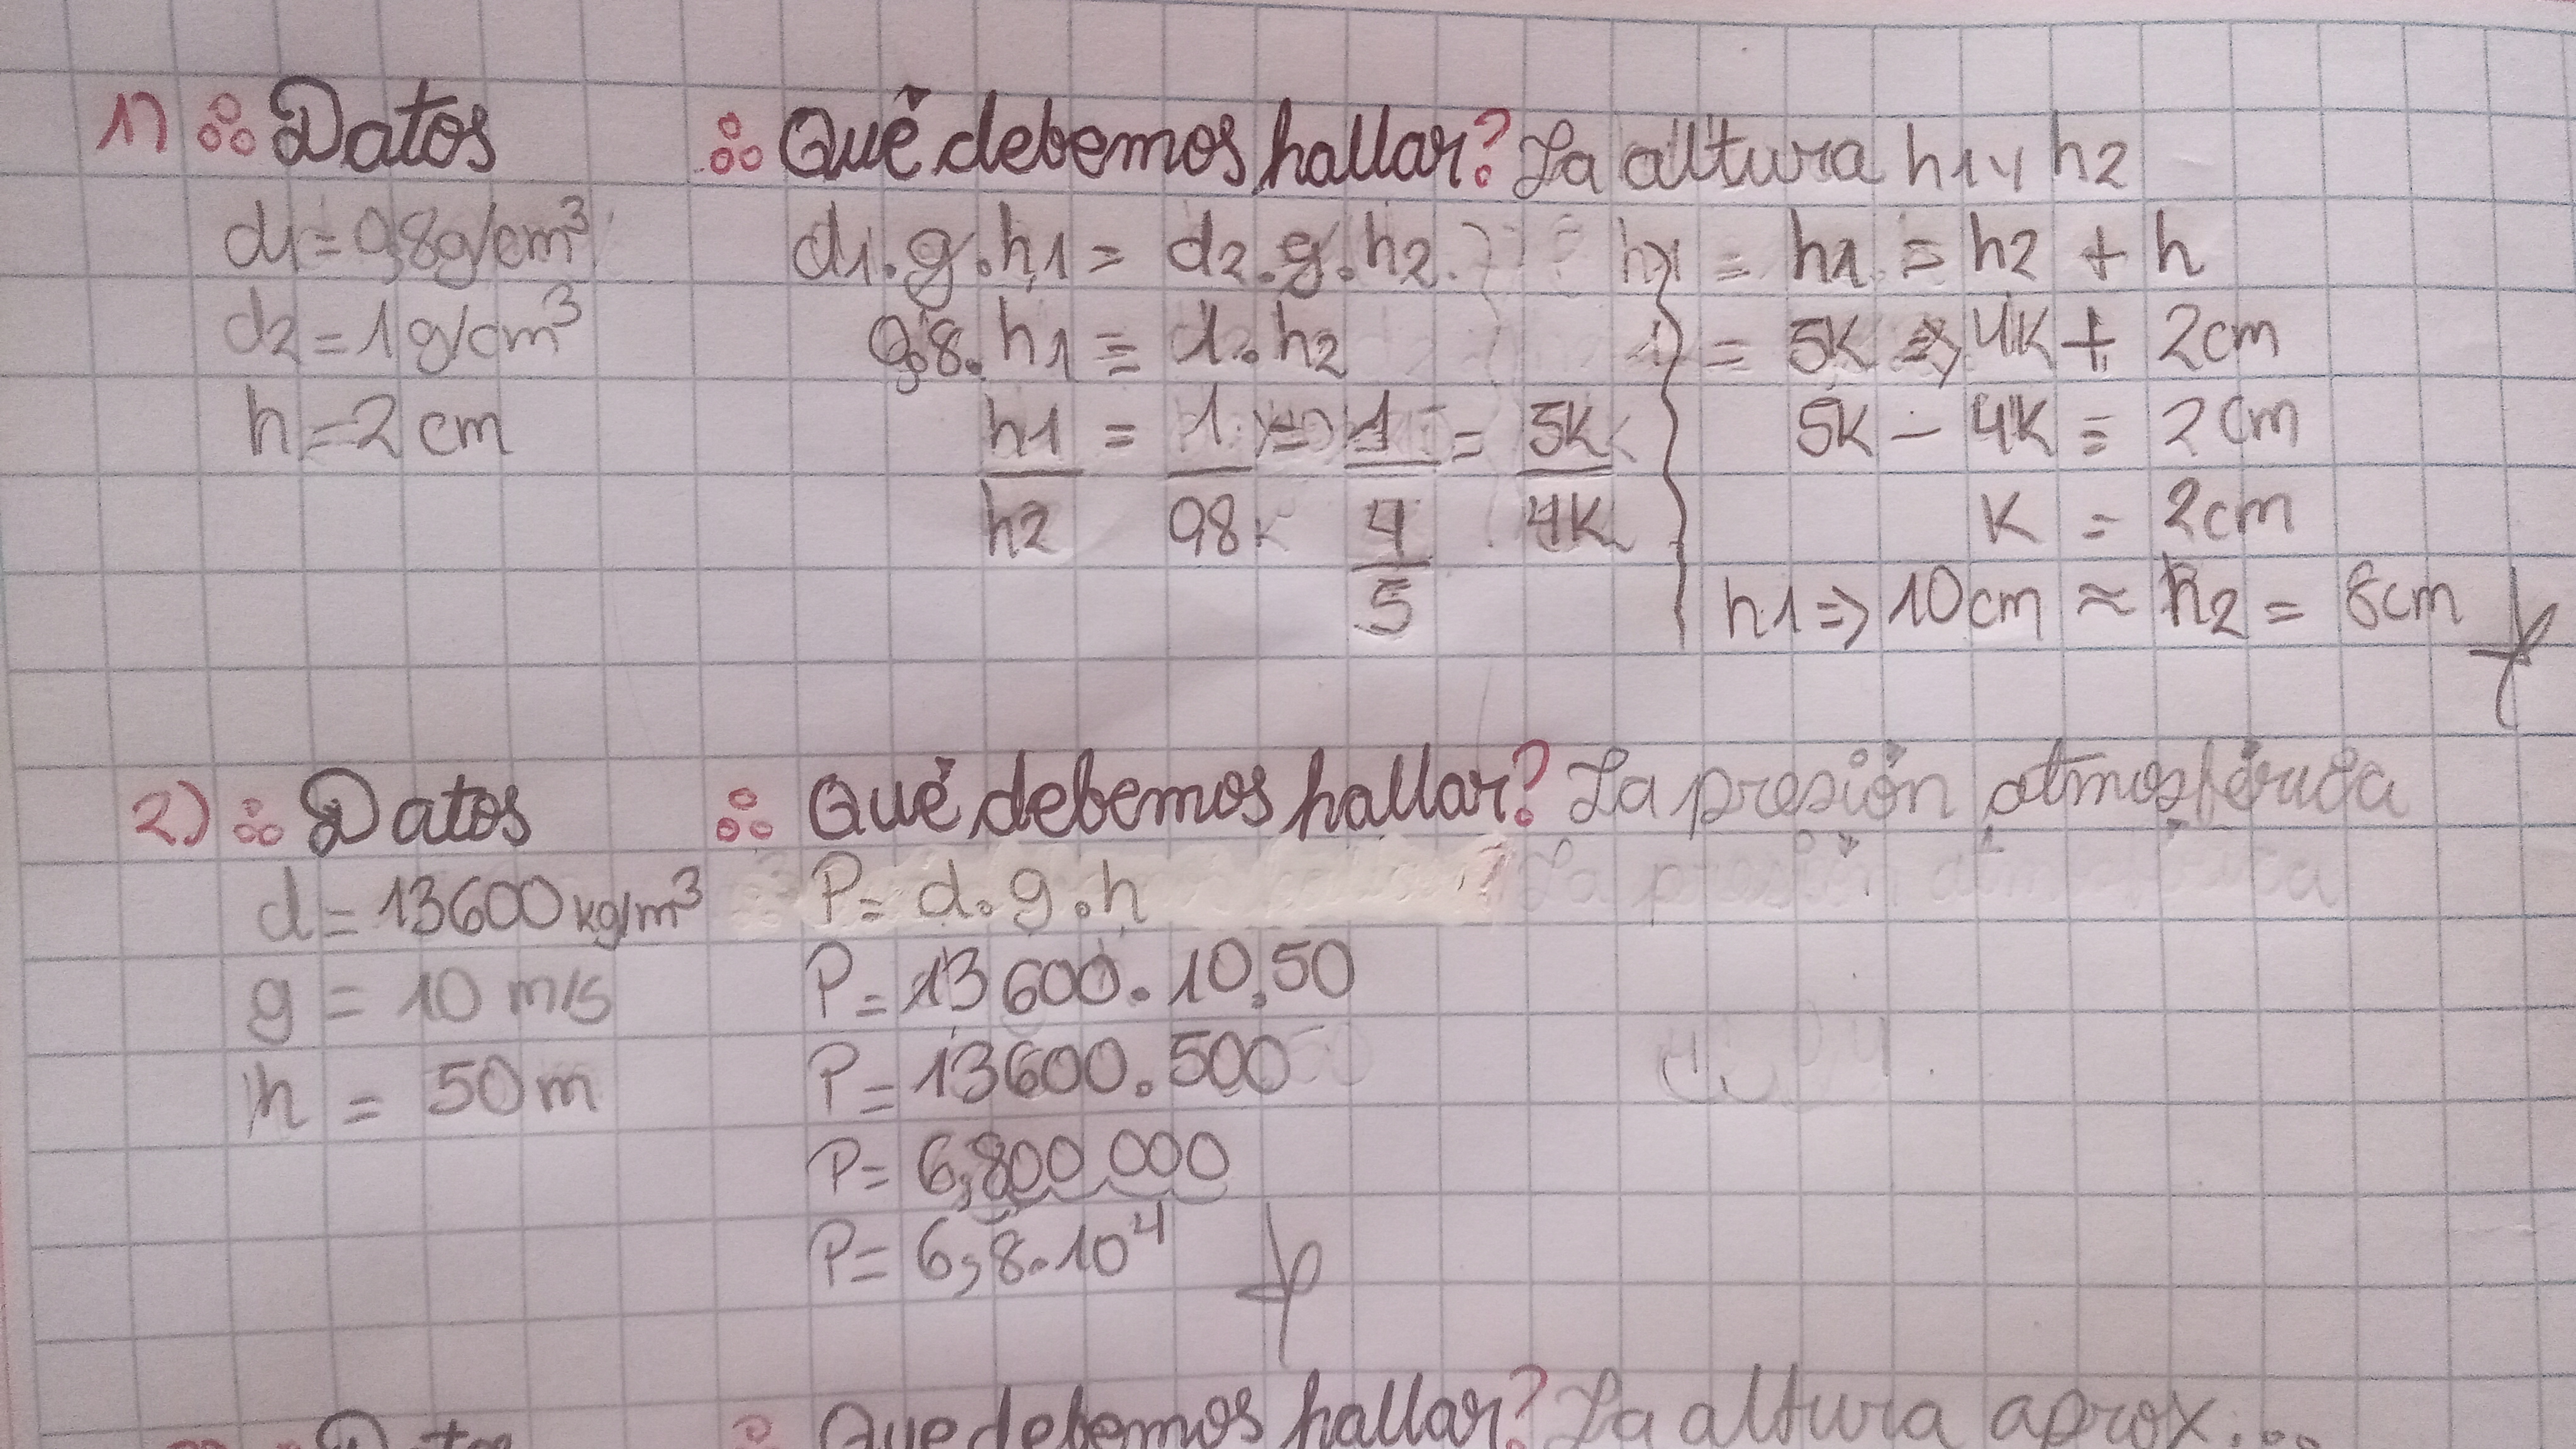 1) Datos
d1 = 0,8g/cm³
d2 = 1g/cm³
h = 2 cm
Qué debemos hallar? La altura h1 y h2
d1.g.h1 = d2.g.h2
0,8.h1 = 1.h2
h1/h2 = 1/0,8 => 1/(4/5) = 5K/4K
= h1 = h2 + h
= 5K => 4K + 2cm
5K - 4K = 2cm
K = 2cm
h1 => 10cm ≈ h2 = 8cm
2) Datos
d = 13600 kg/m³
g = 10 m/s
h = 50m
Qué debemos hallar? La presión atmosférica
P = d.g.h
P = 13600.10.50
P = 13600.500
P = 6,800 000
P = 6,8.10⁴
Datos
Que debemos hallar? La altura aprox...